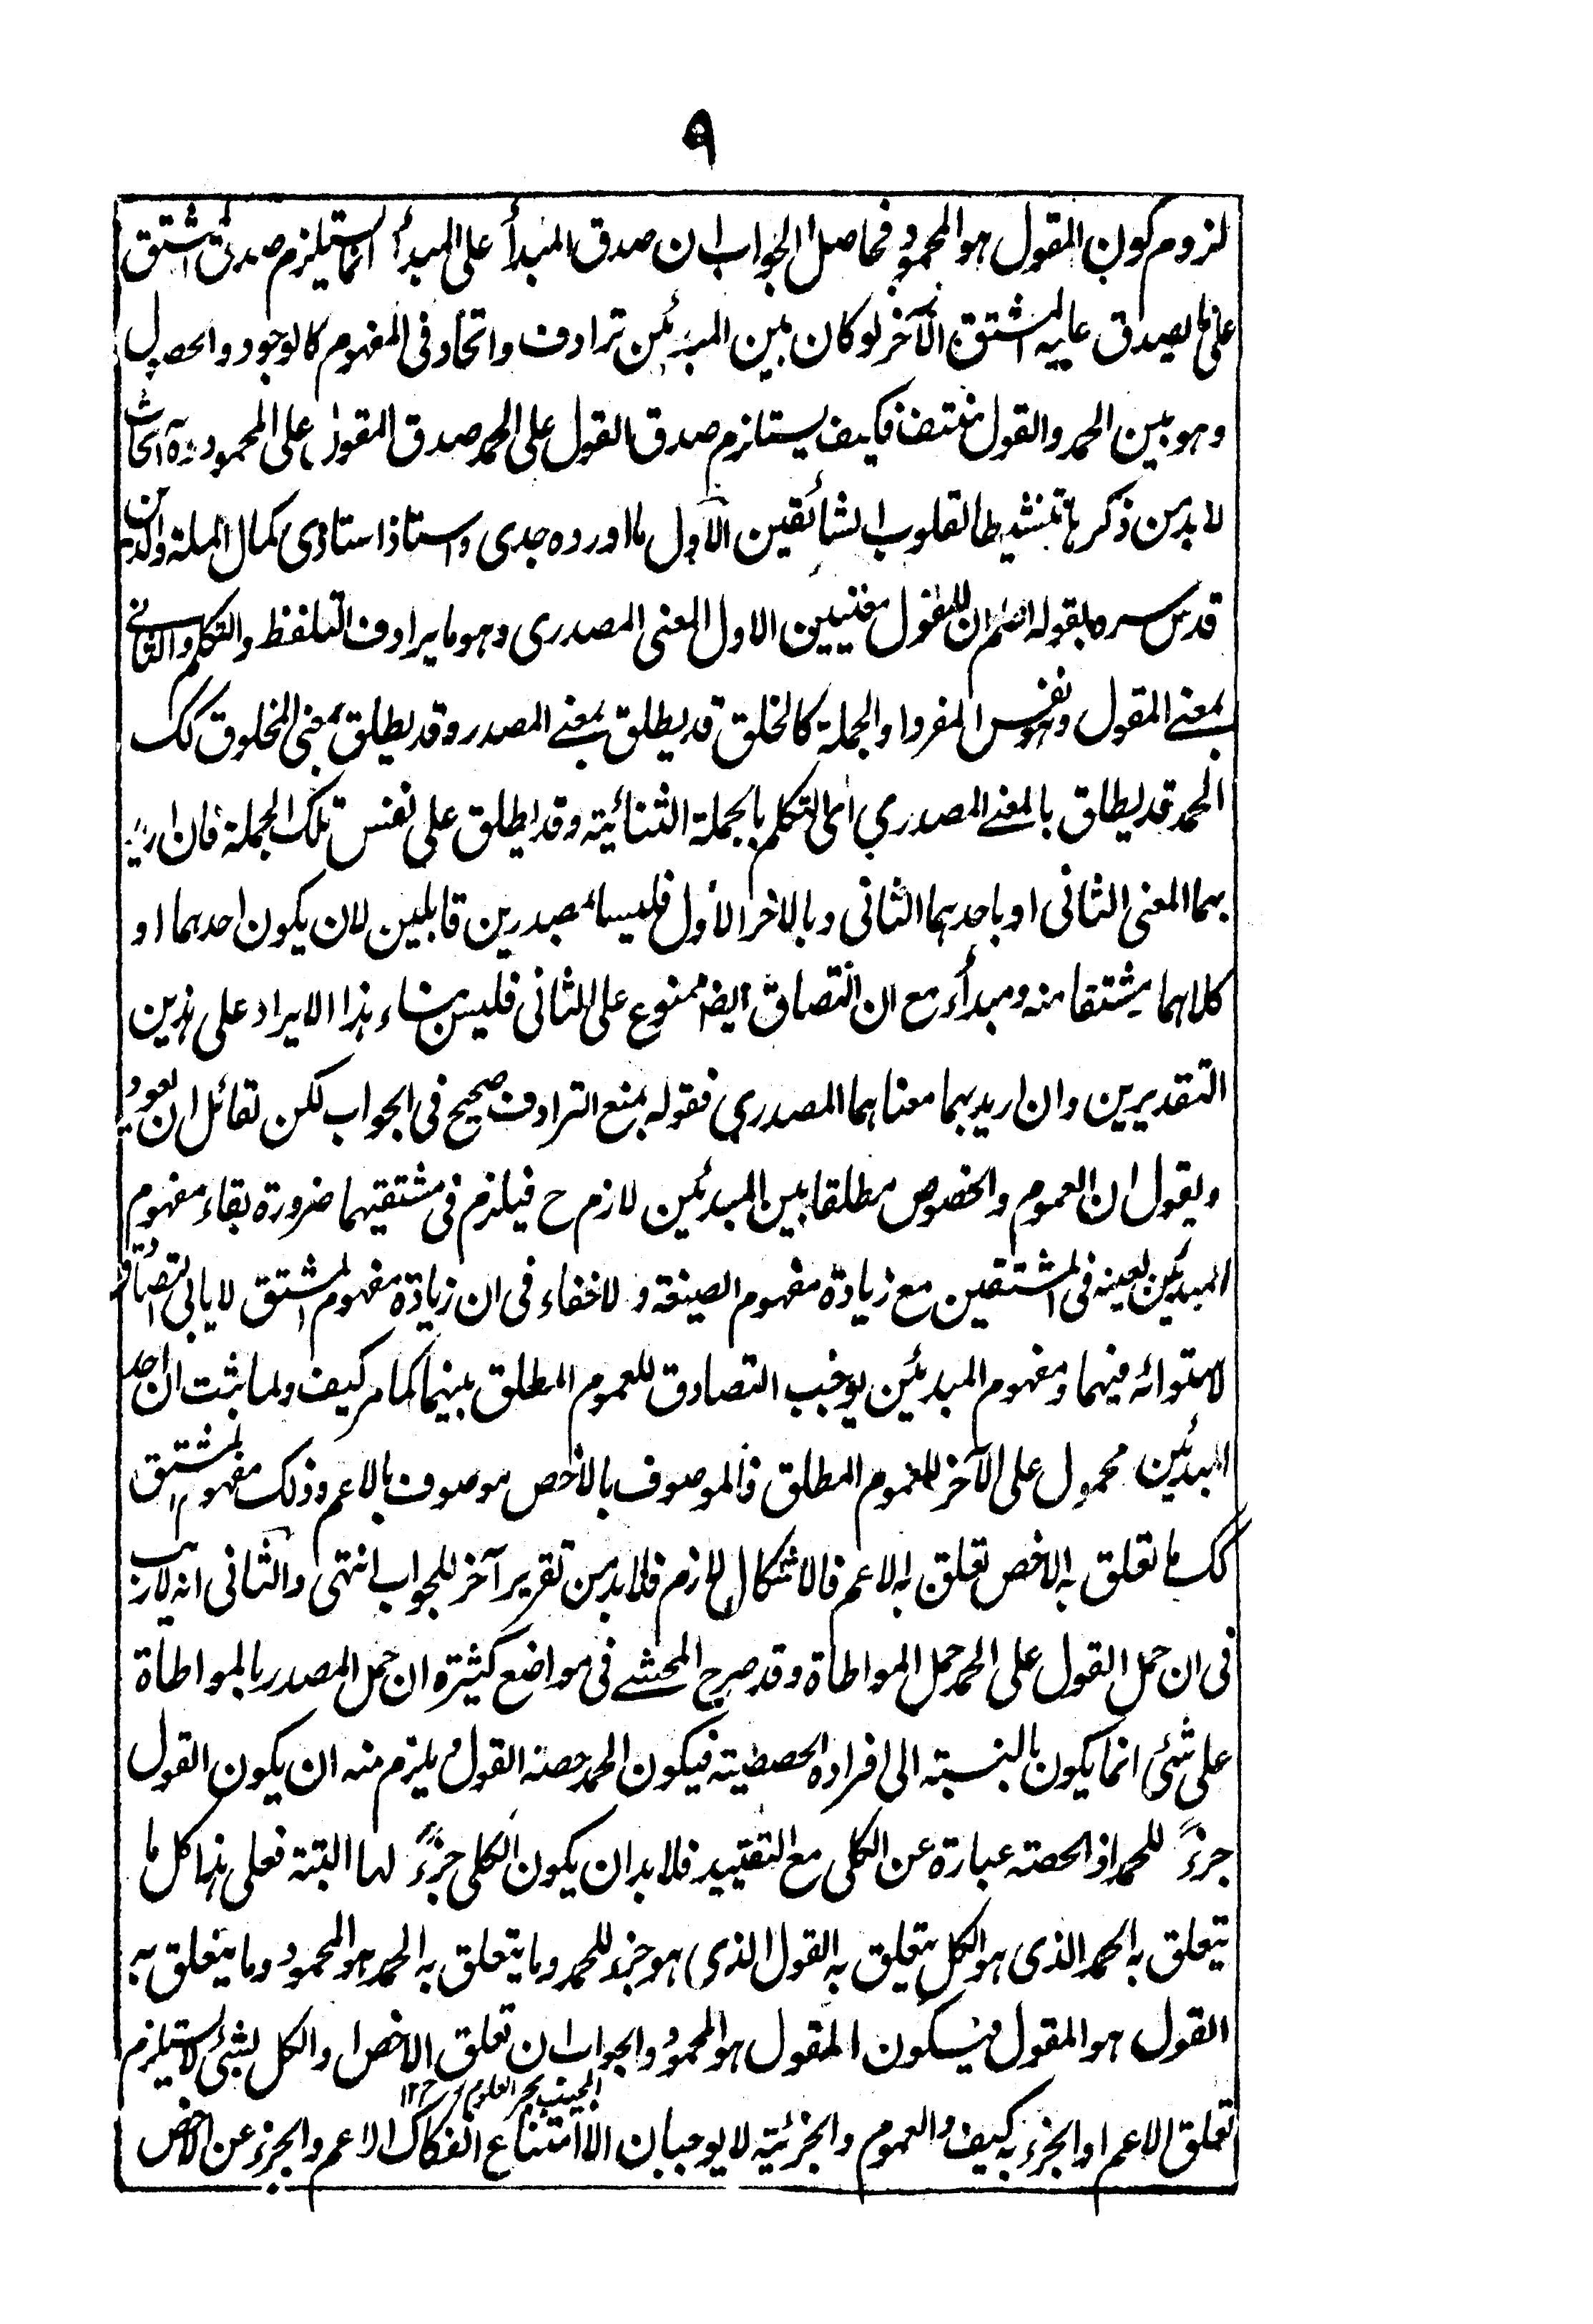 ٩
لزوم كون المقول هو المحمود فحاصل الجواب ان صدق المبدأ على المبدأ انما يستلزم صدق المشتق
على ما يصدق عليه المشتق الآخر لو كان بين المبدئين ترادف واتحاد فى المفهوم كالوجود والحصول
وهو بين الحمد والقول منتف فكيف يستلزم صدق القول على الحمد صدق المقول على المحمود وههنا ابحاث
لا بد من ذكرها تنشيطا لقلوب الشائقين الاول ما اورده جدى واستاذ استاذى كمال الملة والدين
قدس سره بقوله اعلم ان للقول معنيين الاول المعنى المصدرى وهو ما يرادف التلفظ والتكلم والثانى
بمعنى المقول وهو نفس المفرد او الجملة كالخلق قد يطلق بمعنى المصدر وقد يطلق بمعنى المخلوق كك
الحمد قد يطلق بالمعنى المصدرى اى التكلم بالجملة الثنائية وقد يطلق على نفس تلك الجملة فان اريد
بهما المعنى الثانى او باحدهما الثانى وبالآخر الاول فليسا بمصدرين قابلين لان يكون احدهما او
كلاهما مشتقا منه ومبدأ مع ان التصادق ايضا ممنوع على الثانى فليس بناء هذا الايراد على هذين
التقديرين وان اريد بهما معناهما المصدرى فقوله بمنع الترادف صحيح فى الجواب لكن لقائل ان يعود
ويقول ان العموم والخصوص مطلقا بين المبدئين لازم ح فيلزم فى مشتقيهما ضرورة بقاء مفهوم
المبدئين بعينه فى المشتقين مع زيادة مفهوم الصيغة ولا خفاء فى ان زيادة مفهوم المشتق لا يابى التصادق
لاستوائه فيهما ومفهوم المبدئين يوجب التصادق للعموم المطلق بينهما كما مر كيف ولما ثبت ان احد
المبدئين محمول على الآخر للعموم المطلق فالموصوف بالاخص موصوف بالاعم وذلك مفهوم المشتق
كك ما تعلق به الاخص تعلق به الاعم فالاشكال لازم فلا بد من تقرير آخر للجواب انتهى والثانى انه لا ريب
فى ان حمل القول على الحمد حمل المواطاة وقد صرح المحشے فى مواضع كثيرة ان حمل المصدر بالمواطاة
على شئ انما يكون بالنسبة الى افراده الحصصية فيكون الحمد حصة القول فيلزم منه ان يكون القول
جزءً للحمد اذ الحصة عبارة عن الكلى مع التقييد فلا بد ان يكون الكلى جزءً لها البتة فعلى هذا كل ما
يتعلق به الحمد الذى هو الكل يتعلق به القول الذى هو جزء للحمد وما يتعلق به الحمد هو المحمود وما يتعلق به
القول هو المقول فيكون المقول هو المحمود والجواب ان تعلق الاخص او الكل بشئ لا يستلزم
المجيب بحر العلوم ١٢
تعلق الاعم او الجزء به كيف والعموم والجزئية لا يوجبان الا امتناع انفكاك الاعم والجزء عن الاخص